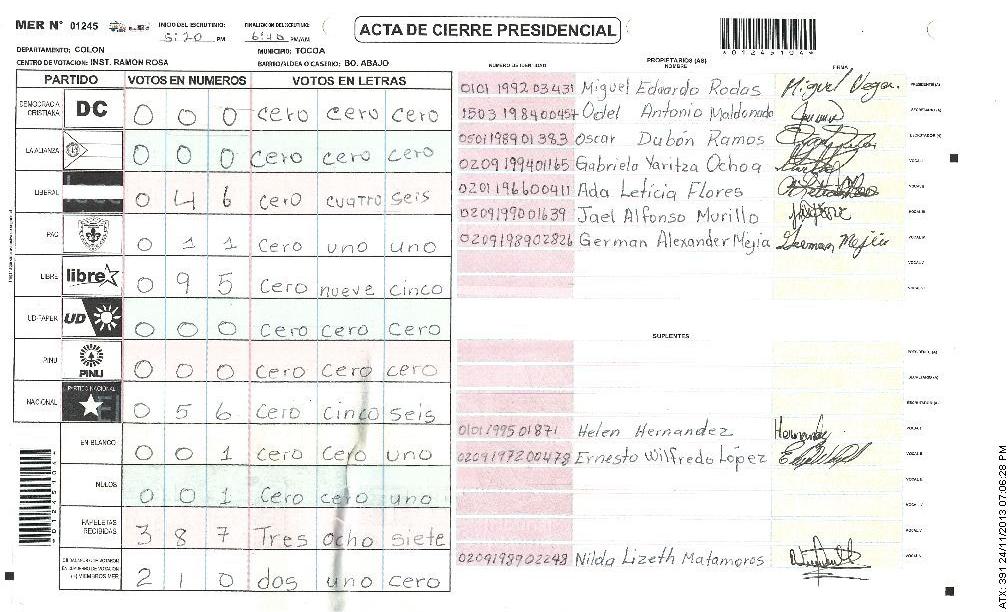 MER N° 01245
INICIO DEL ESCRUTINIO: 5:20 PM
FINALIZACION DEL ESCRUTINIO: 6:40 PM/AM
ACTA DE CIERRE PRESIDENCIAL
*01245104*
DEPARTAMENTO: COLON
MUNICIPIO: TOCOA
CENTRO DE VOTACION: INST. RAMON ROSA
BARRIO/ALDEA O CASERIO: BO. ABAJO
PARTIDO VOTOS EN NUMEROS VOTOS EN LETRAS
DEMOCRACIA CRISTIANA DC 0 0 0 cero cero cero
LA ALIANZA 0 0 0 cero cero cero
LIBERAL 0 4 6 cero cuatro seis
PAC 0 1 1 cero uno uno
LIBRE libre 0 9 5 cero nueve cinco
UD-FAPER UD 0 0 0 cero cero cero
PINU PINU 0 0 0 cero cero cero
NACIONAL PARTIDO NACIONAL 0 5 6 cero cinco seis
EN BLANCO 0 0 1 cero cero uno
NULOS 0 0 1 cero cero uno
PAPELETAS RECIBIDAS 3 8 7 Tres ocho siete
2 1 0 dos uno cero
NUMERO DE IDENTIDAD PROPIETARIOS (AS) NOMBRE FIRMA
0101 1992 03431 Miguel Eduardo Rodas PRESIDENTE(A)
1503 198400457 Odel Antonio Maldonado SECRETARIO(A)
0501198901383 Oscar Dubón Ramos ESCRUTADOR(A)
0209199401165 Gabriela Yaritza Ochoa VOCAL I
0201 196600411 Ada Leticia Flores VOCAL II
0209199001639 Jael Alfonso Murillo VOCAL III
0209198902826 German Alexander Mejia German Mejia VOCAL IV
VOCAL V
SUPLENTES
PRESIDENTE(A)
SECRETARIO(A)
ESCRUTADOR(A)
0101199501871 Helen Hernandez Hernandez VOCAL I
0209197200478 Ernesto Wilfredo Lopez VOCAL II
0209198902248 Nilda Lizeth Matamoros
*01245104*
ATX: 391 24/11/2013 07:06:28 PM